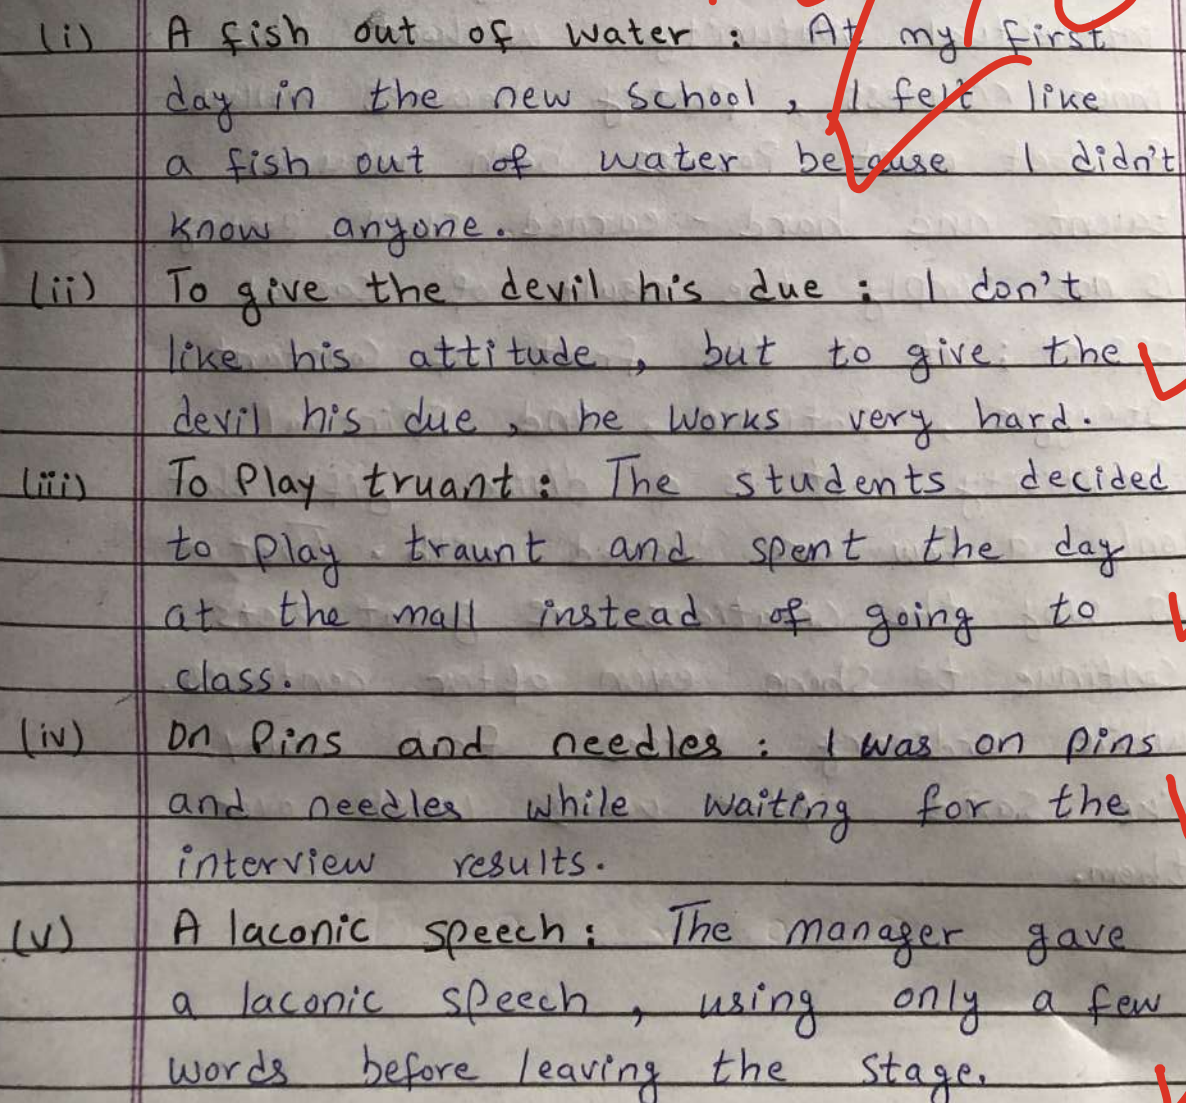 (i) A fish out of water : At my first
day in the new school, I felt like
a fish out of water because I didn't
know anyone.
(ii) To give the devil his due : I don't
like his attitude, but to give the
devil his due, he works very hard.
(iii) To Play truant : The students decided
to play traunt and spent the day
at the mall instead of going to
class.
(iv) On Pins and needles : I was on pins
and needles while waiting for the
interview results.
(v) A laconic speech : The manager gave
a laconic speech, using only a few
words before leaving the stage.